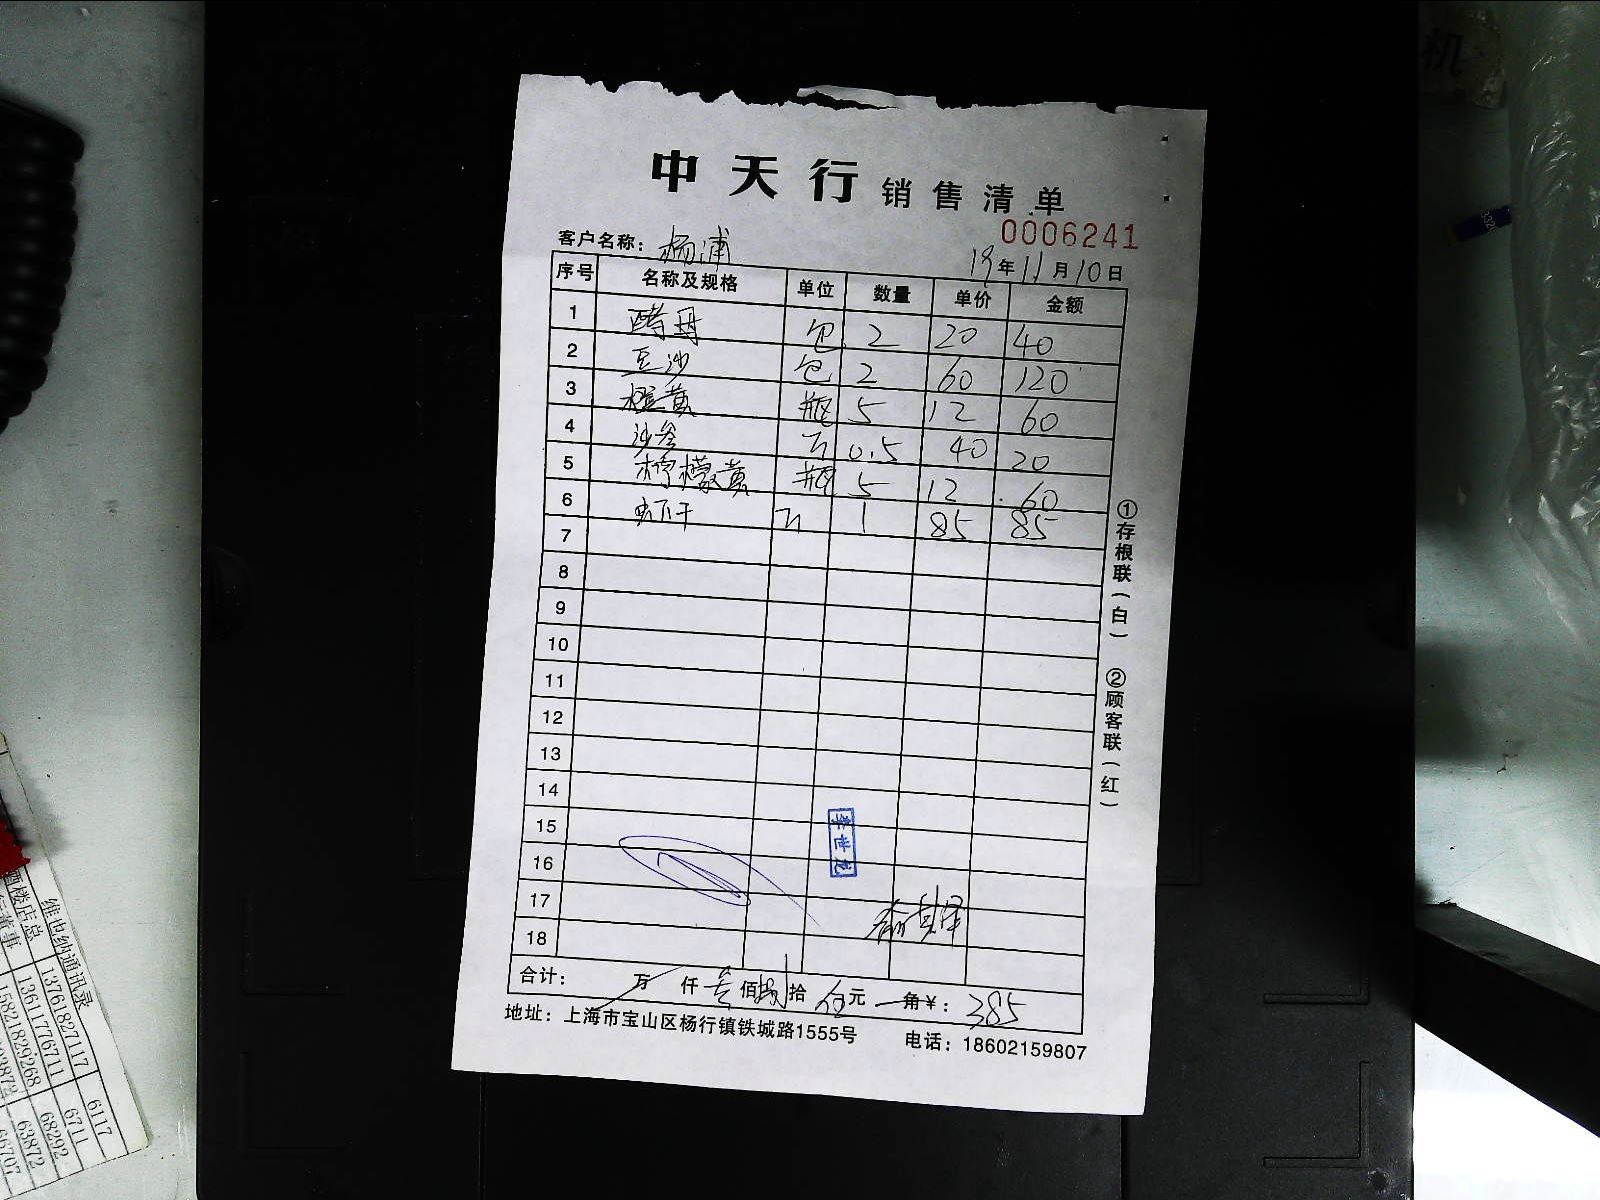 中天行销售清单
0006241
客户名称：杨浦 19年11月10日
序号 名称及规格 单位 数量 单价 金额
1 酵母 包 2 20 40
2 豆沙 包 2 60 120
3 橙黄 瓶 5 12 60
4 沙参 斤 0.5 40 20
5 柠檬黄 瓶 5 12 60
6 虾干 斤 1 85 85
7
8
9
10
11
12
13
14
15
16
17
18
合计： 万 仟 叁佰捌拾伍元 角￥：385
地址：上海市宝山区杨行镇铁城路1555号 电话：18602159807
①存根联（白） ②顾客联（红）
维也纳通讯录
酒楼店总 13761827117 6117
13611776711 6711
15821829268 68292
63872
66707
机